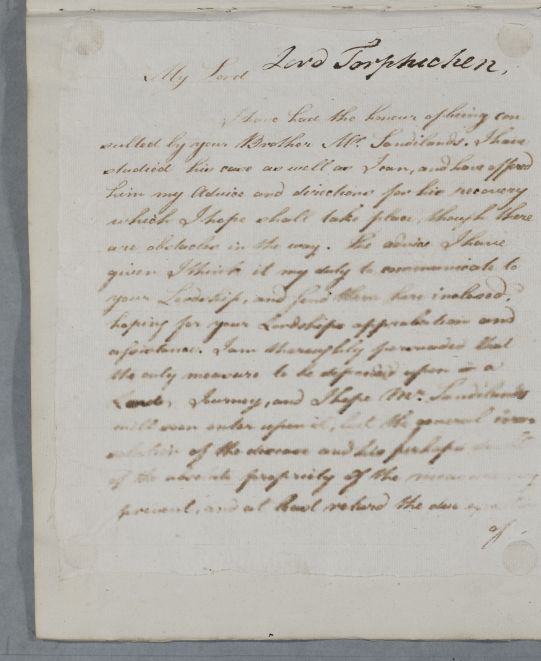 My Lord Lord Torphichen,
I have had the honour of being con
sulted by your Brother Mr. Sandilands. I have
studied his case as well as I can, and have offered
him my Advice and directions for his recovery
which I hope shall take place, though there
are obstacles in the way. The advice I have
given I think it my duty to communicate to
your Lordship, and send them here inclosed,
hoping for your Lordships approbation and
assistance. I am thoroughly persuaded that
the only measure to be depended upon is a
Journey, and I hope Mr. Sandilands
will soon enter upon it, but the general
of the disease and his perhaps
of the absolute propriety of the
prevent, and at least retard the due
of